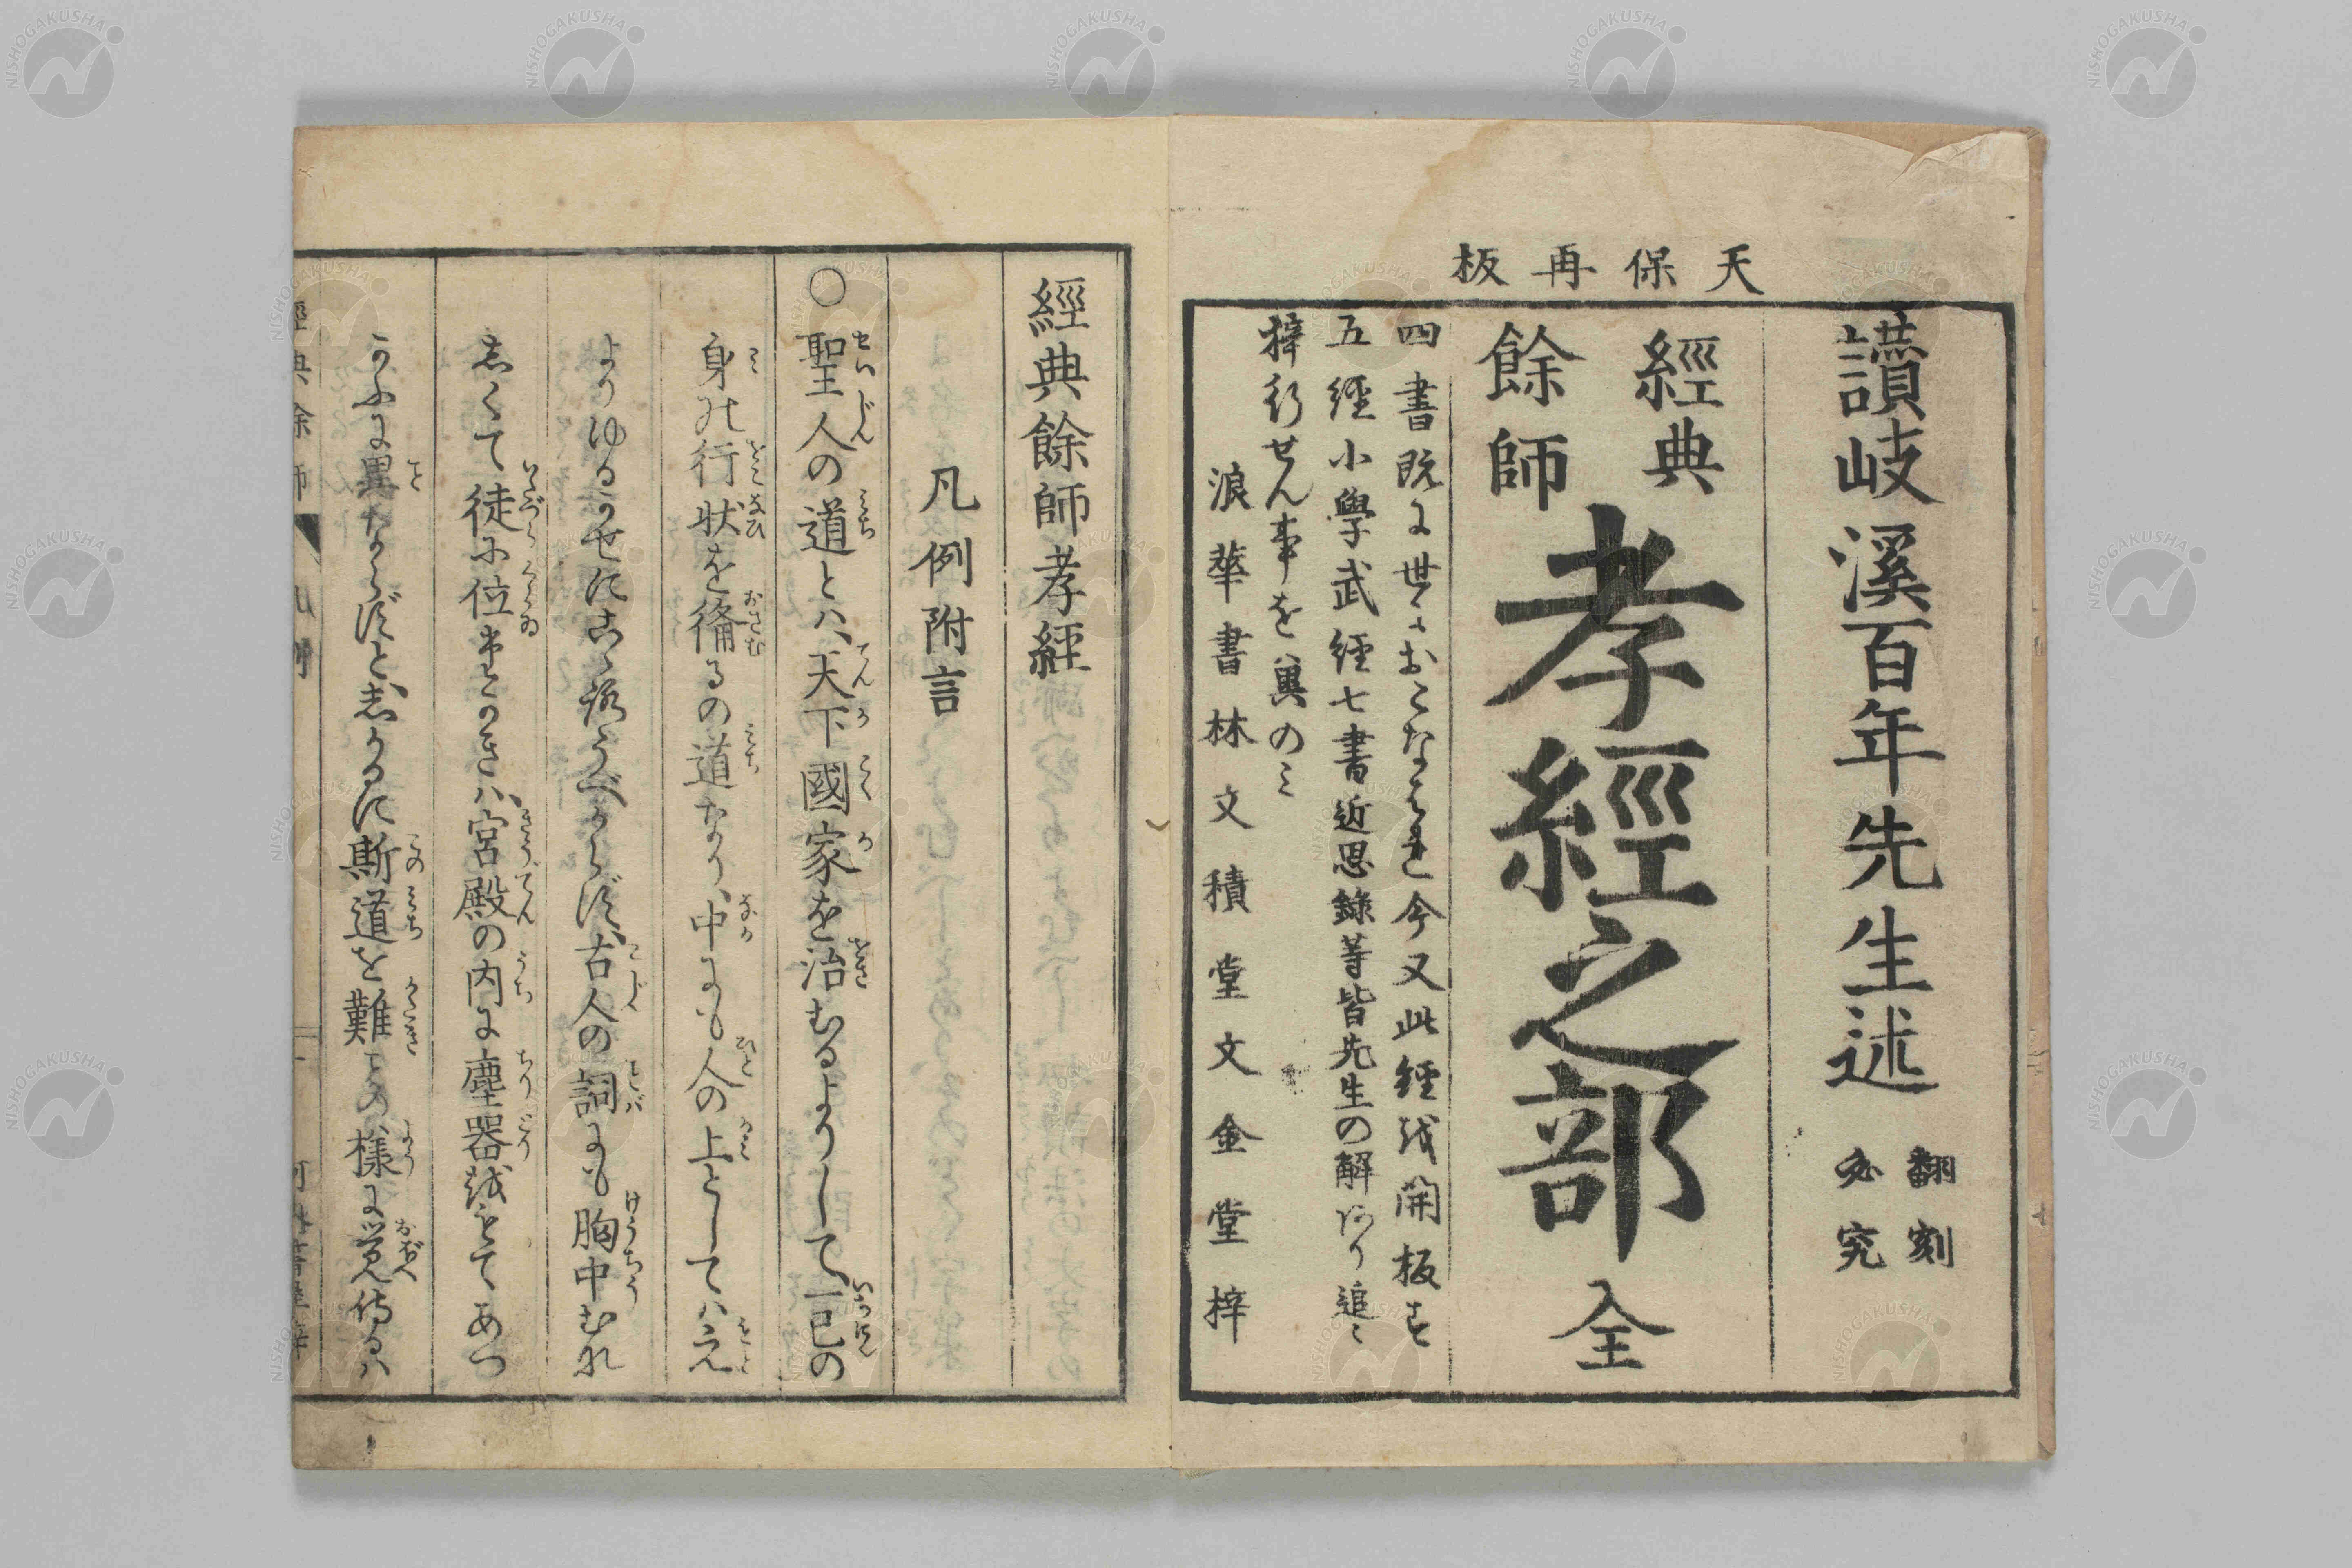 天保再板
讃岐溪百年先生述
翻刻
必究
經典
餘師
孝經之部
全
四書既に世におこなはれ今又此經を開板す
五經小學武經七書近思錄等皆先生の解あり追々
梓行せん事を冀のミ
浪華書林文積堂文金堂梓
經典餘師孝經
凡例附言
○聖人の道とハ、天下國家を治むるよりして、一已の
身の行状を脩るの道なり、中にも人の上としてハ、
よりゆるかせにこゝろうべからず、古人の詞にも胸中むな
しくて徒に位たかきハ、宮殿の内に塵器をもてあつ
かふに異ならずと、しかるに斯道を難きの様に覚侍るハ
經典余師
凡例
NISHOGAKUSHA